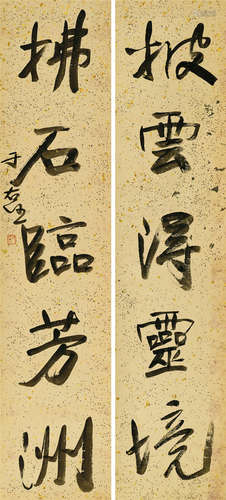 披雲得靈境
拂石臨芳洲
于右任